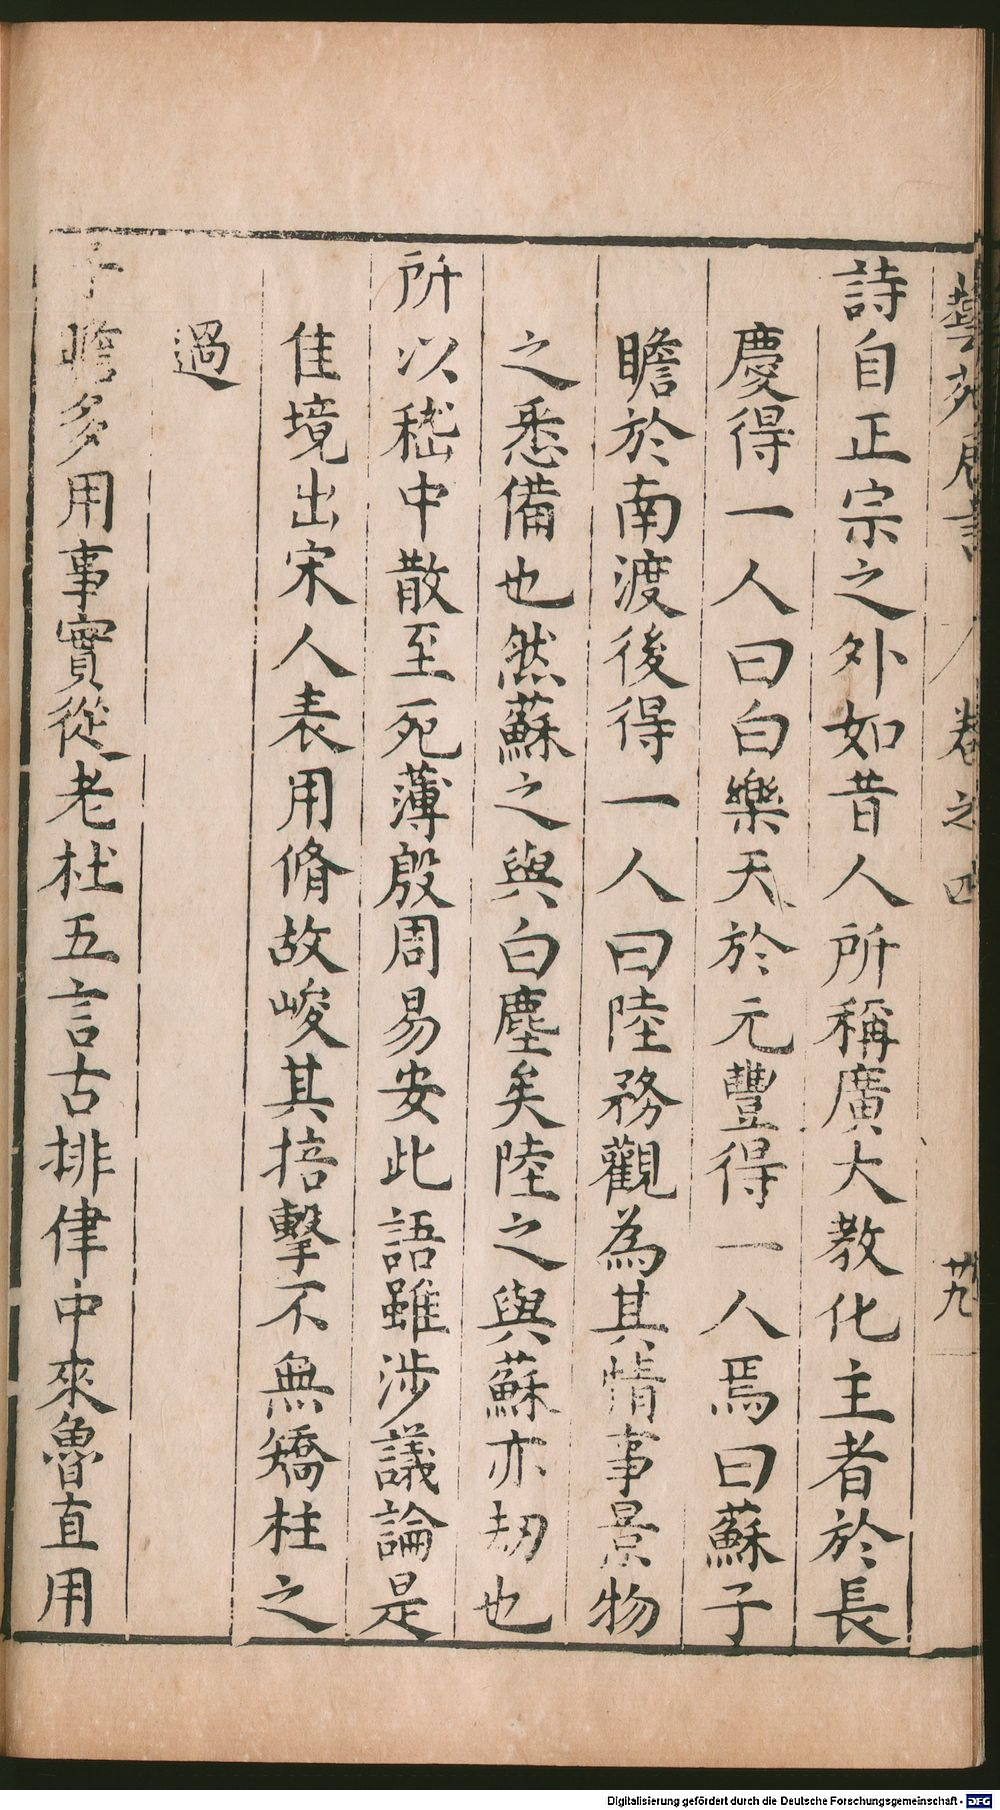 藝苑卮言 卷之四 廿九
詩自正宗之外如昔人所稱廣大教化主者於長
慶得一人曰白樂天於元豐得一人焉曰蘇子
瞻於南渡後得一人曰陸務觀為其情事景物
之悉備也然蘇之與白塵矣陸之與蘇亦刼也
所以嵇中散至死薄殷周易安此語雖涉議論是
佳境出宋人表用脩故峻其掊擊不無矯枉之
過
子瞻多用事實從老杜五言古排律中來魯直用
Digitalisierung gefördert durch die Deutsche Forschungsgemeinschaft - DFG